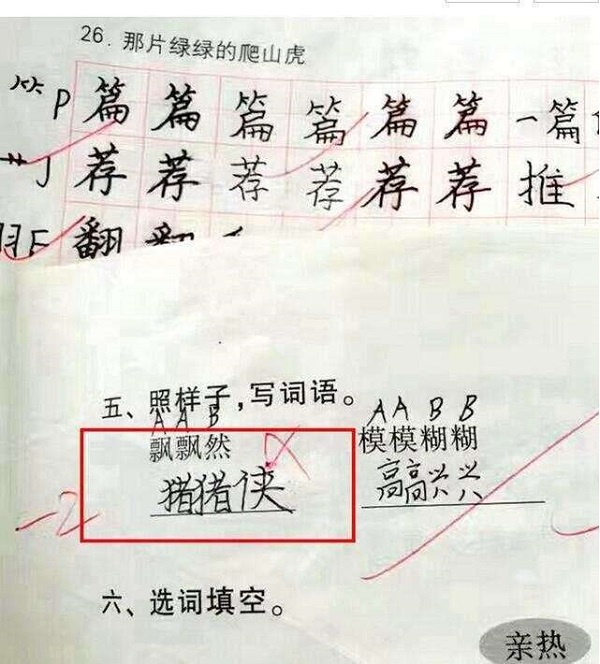 26. 那片绿绿的爬山虎
⺮ P 篇 篇 篇 篇 篇 篇 一篇
艹 J 荐 荐 荐 荐 荐 荐 推
羽 F 翻 翻
五、照样子,写词语。
A A B A A B B
飘飘然 模模糊糊
猪猪侠 高高兴兴
-2
六、选词填空。
亲热